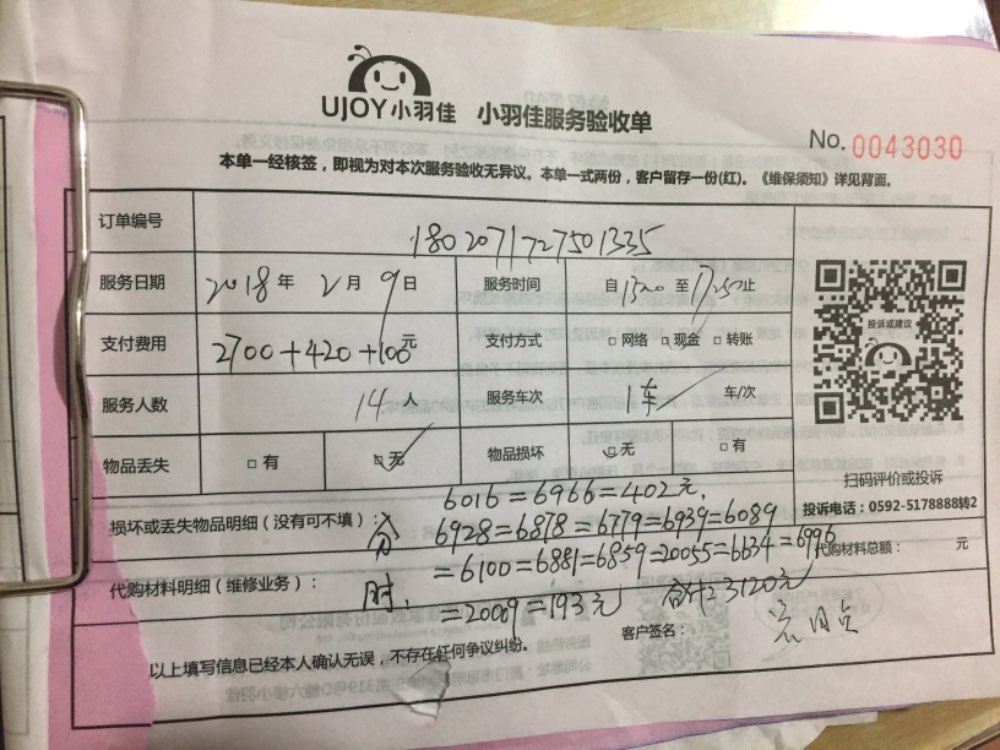 UJOY小羽佳 小羽佳服务验收单
No. 0043030
本单一经核签，即视为对本次服务验收无异议。本单一式两份，客户留存一份(红)。《维保须知》详见背面。
订单编号 1802071727501335
服务日期 2018年 2月 9日 服务时间 自1320至17250止
支付费用 2700+420+100元 支付方式 □网络 □现金 □转账
投诉或建议
服务人数 14人 服务车次 1车 车/次
物品丢失 □有 □无 物品损坏 □无 □有
扫码评价或投诉
投诉电话：0592-5178888转2
6016=6966=402元,
损坏或丢失物品明细（没有可不填）： 分 6928=6878=6779=6939=6089
代购材料总额： 元
=6100=6881=6859=20055=6634=6996
代购材料明细（维修业务）： 时,
=20009=193元 合计23120元
客户签名：
以上填写信息已经本人确认无误，不存在任何争议纠纷。